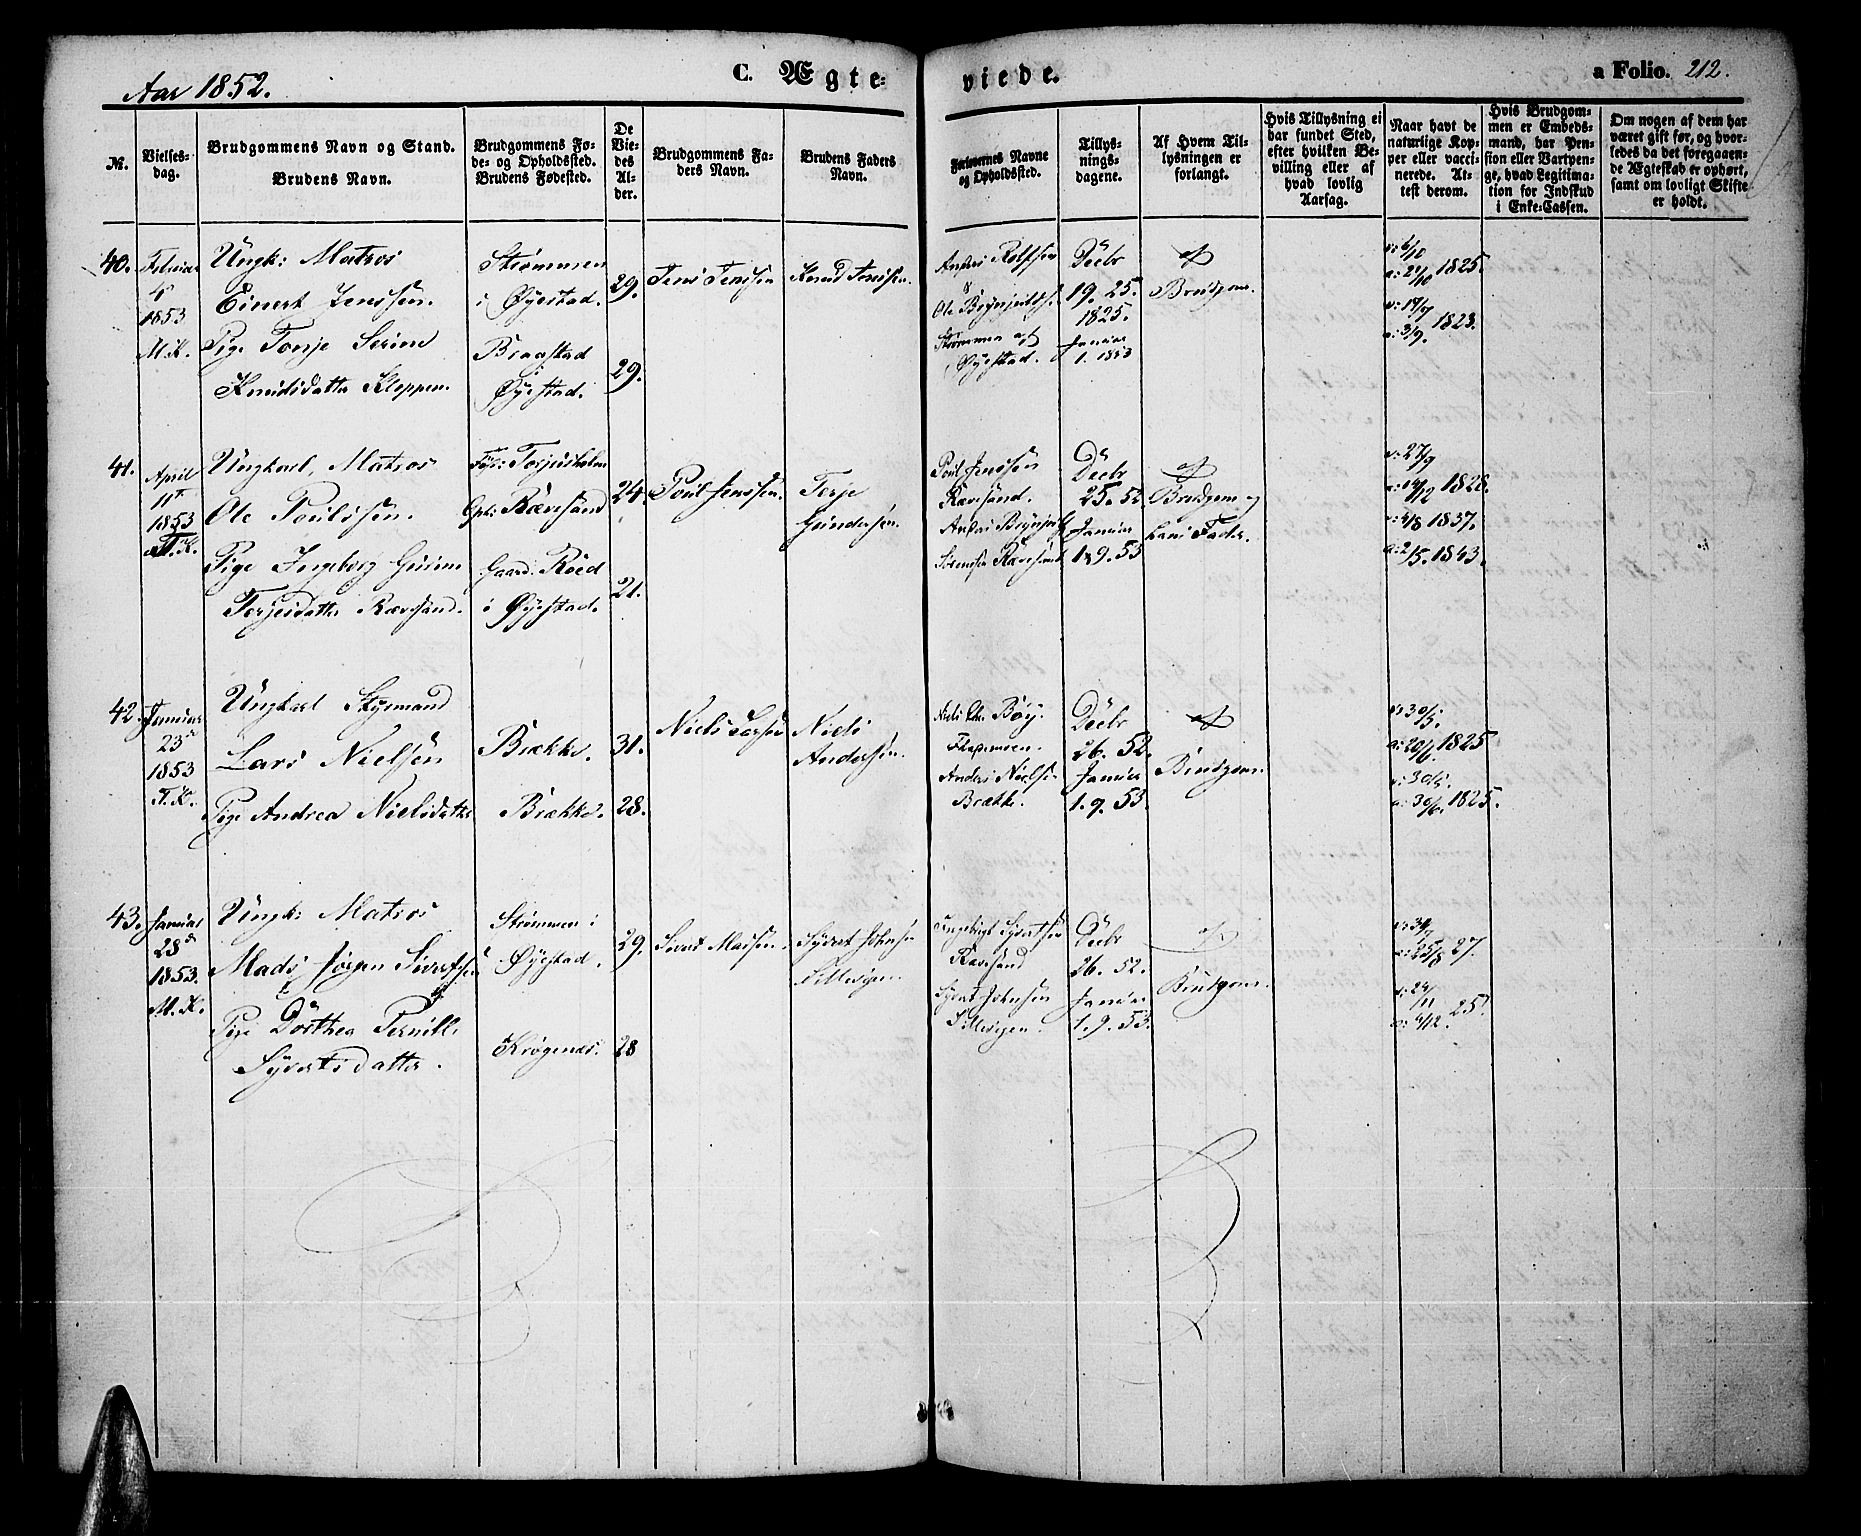 Aar 1852.
C. Ægte-
viede.
a Folio. 212.
№.
Vielses-
dag.
Brudgommens Navn og Stand.
Brudens Navn.
Brudgommens Fø-
de- og Opholdssted.
Brudens Fødested.
De
Vie-
des
Al-
der.
Brudgommens Fa-
ders Navn.
Brudens Faders
Navn.
Forlovernes Navne
og Opholdssted.
Tillys-
nings-
dagene.
Af Hvem Til-
lysningen er
forlangt.
Hvis Tillysning ei
har fundet Sted,
efter hvilken Be-
villing eller af
hvad lovlig
Aarsag.
Naar havt de
naturlige Kop-
per eller vacci-
nerede. At-
test derom.
Hvis Brudgom-
men er Embeds-
mand, har Pen-
sion eller Vartpen-
ge, hvad Legitima-
tion for Indskud
i Enke-Cassen.
Om nogen af dem har
været gift før, og hvor-
ledes da det foregaaen-
de Ægteskab er ophørt,
samt om lovligt Skifte
er holdt.
40.
Februar
1853
M.K.
Ungk: Matros
Einert Jenssen.
Pige Tonje Serine
Knudsdatter Kloppen.
Strømmen
i Øyestad.
Braastad
i
Øyestad.
29.
29.
Jens Jenssen
Knud Jenssen.
Anders Rolfsen
&
Ole
Strømmen af
Øyestad.
Decbr
19. 25.
1825.
Januar
1. 1853
af
Brudgom.
v: 6/10
a: 21/10 1825.
v: 17/7
a: 3/9. 1823.
41.
April
11te
1853
Ungkarl, Matros
Ole Poulssen.
Pige Ingeborg Gurine
Terjesdatter Rævesand.
Fød: Torjusholm
Oph: Rævesand
Gaard. Roed
i Øyestad.
24.
21.
Poul Jenssen.
Terje
Gundersen.
Poul Jenssen
Rævesand.
Anders
Sørenssen Rævesand
Decbr
25. 52
Januar
1 & 9. 53
af
Brudgom og
hans Fader.
v: 27/9
a: 14/12 1828.
v: 4/8 1837.
a: 2/5. 1843.
42.
Januar
23de
1853
T.K.
Ungkarl Styrmand
Lars Nielsen
Pige Andrea Nielsdatter
Brække.
Brække.
31.
28.
Niels Larsen
Niels
Anderssen.
Niels Chr. Bøy.
Flageneen.
Anders Nielsen
Brække.
Decbr
26. 52.
Januar
1. 9. 53.
af
Brudgom.
v: 30/5.
a: 20/6 1825
v: 30/5.
a: 30/6. 1825.
43.
Januar
28de
1853.
M.K.
Ungk: Matros
Mads Jørgen Sivertsen
Pige Dorthea Pernille
Syvertsdatter.
Strømmen i
Øyestad.
Krøgenes.
29.
28
Sivert Madsen.
Syvert Johnsen
Sillevigen.
Ingebrigt Syvertsen
Rævesand
Syvert Johnsen
Sillevigen.
Decbr
26. 52.
Januar
1. 9. 53.
af
Brudgom.
v: 31/7
a: 25/8 27.
v: 24/11
a: 4/12. 25.